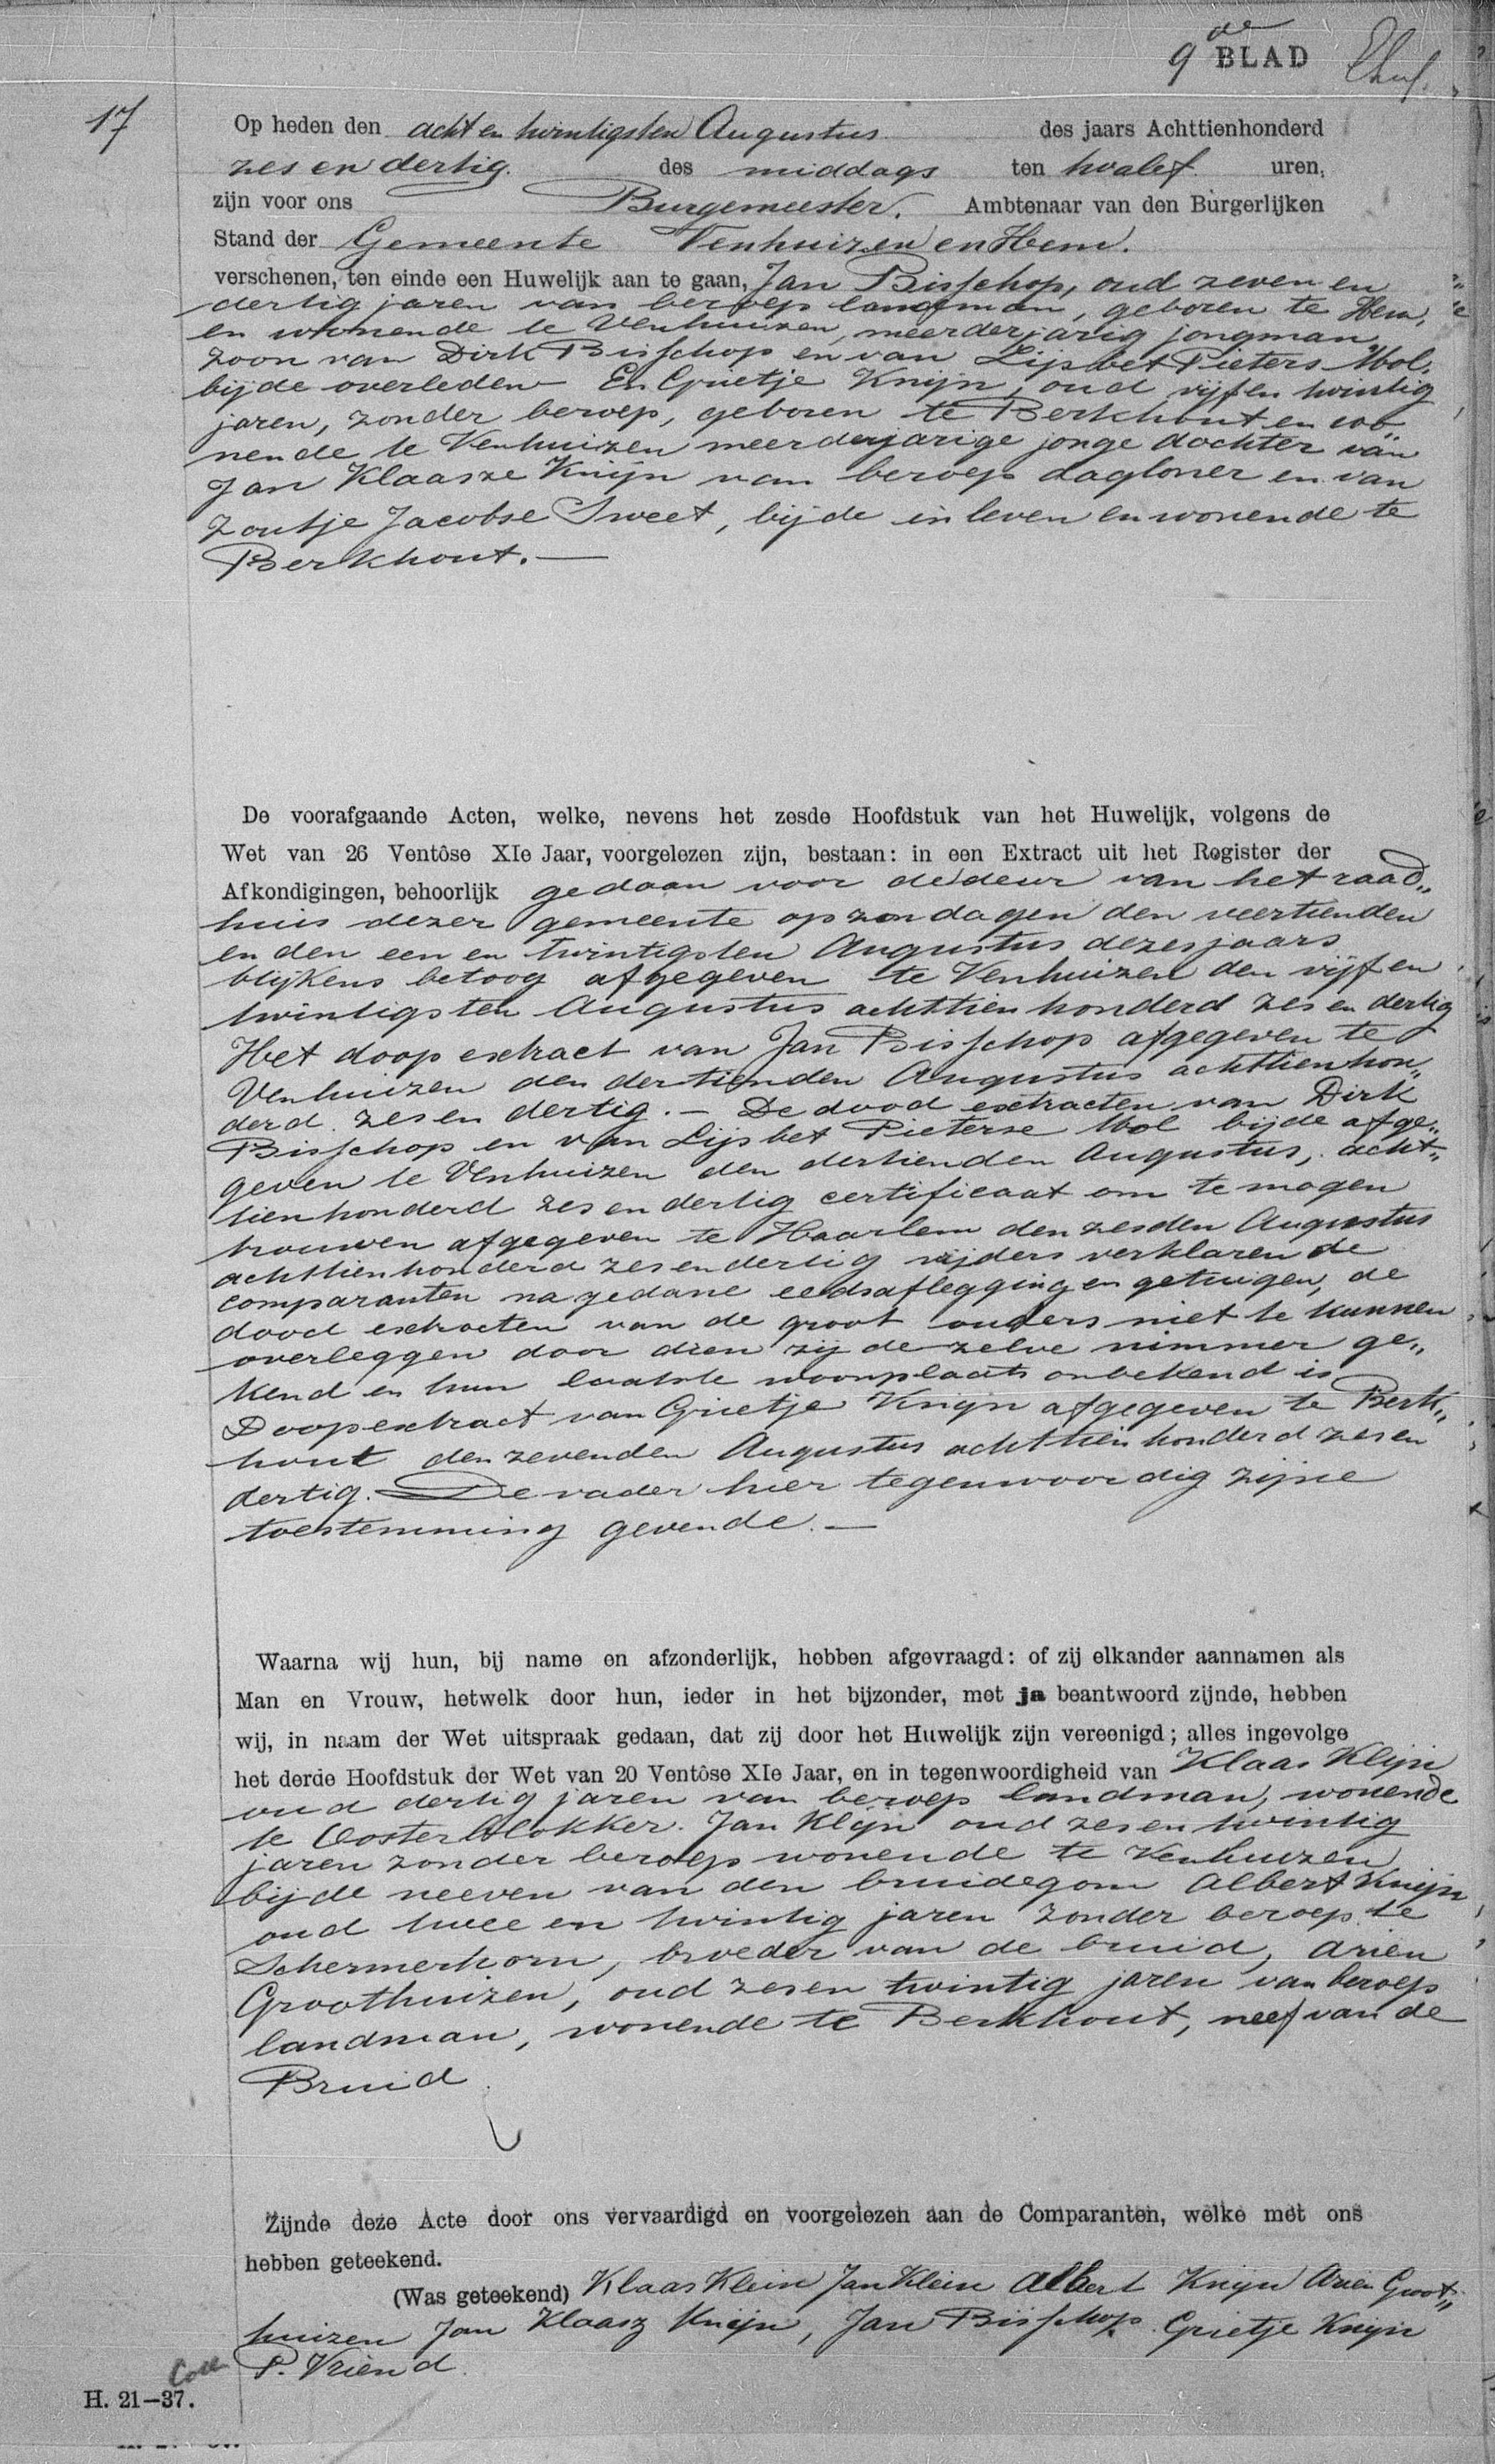 9 de BLAD
17
Op heden den acht en twintigsten Augustus des jaars Achttienhonderd
zes en dertig. des middags ten twalef uren,
zijn voor ons Burgemeester. Ambtenaar van den Burgerlijken
Stand der Gemeente Venhuizen en Hem.
verschenen, ten einde een Huwelijk aan te gaan, Jan Bisschop, oud zeven en
dertig jaren van beroep landman, geboren te Hem,
en wonende te Venhuizen, meerderjarig jongman,
zoon van Dirk Bisschop en van Lijsbet Pieters Mol.
bijde overleden En Grietje Knijn, oud vijf en twintig
jaren, zonder beroep, geboren te Berkhout en wo„
nende te Venhuizen meerderjarige jonge dochter van
Jan Klaasze Knijn van beroep dagloner en van
Zoutje Jacobse Sweet, bijde in leven en wonende te
Berkhout.—
De voorafgaande Acten, welke, nevens het zesde Hoofdstuk van het Huwelijk, volgens de
Wet van 26 Ventôse XIe Jaar, voorgelezen zijn, bestaan: in een Extract uit het Register der
Afkondigingen, behoorlijk gedaan voor de deur van het raad„
huis dezer gemeente op zondagen den veertienden
en den een en twintigsten Augustus dezes jaars
blijkens betoog afgegeven te Venhuizen den vijf en
twintigsten Augustus achttien honderd zes en dertig
Het doop extract van Jan Bisschop afgegeven te
Venhuizen den dertienden Augustus achttienhon„
derd zes en dertig. — De dood extracten van Dirk
Bisschop en van Lijsbet Pieterse Mol bijde afge„
geven te Venhuizen den dertienden Augustus, acht„
tienhonderd zes en dertig certificaat om te mogen
trouwen afgegeven te Haarlem den zesden Augustus
achttienhonderd zes en dertig wijders verklaren de
comparanten na gedane eedsaflegging en getuigen, de
dood extracten van de groot ouders niet te kunnen
overleggen door dien zij de zelve nimmer ge„
kend en hun laatste woonplaats onbekend is
Doopextract van Grietje Knijn afgegeven te Berk„
hout den zevenden Augustus achttien honderd zes en
dertig. — De vader hier tegenwoordig zijne
toestemming gevende. —
Waarna wij hun, bij name en afzonderlijk, hebben afgevraagd: of zij elkander aannamen als
Man en Vrouw, hetwelk door hun, ieder in het bijzonder, met ja beantwoord zijnde, hebben
wij, in naam der Wet uitspraak gedaan, dat zij door het Huwelijk zijn vereenigd; alles ingevolge
het derde Hoofdstuk der Wet van 20 Ventôse XIe Jaar, en in tegenwoordigheid van Klaas Klijn
oud dertig jaren van beroep landman, wonende
te Oosterblokker. Jan Klijn oud zes en twintig
jaren zonder beroep wonende te Venhuizen
bijde neeven van den bruidegom Albert Knijn
oud twee en twintig jaren zonder beroep te
Schermerhorn, broeder van de bruid, Arien
Groothuizen, oud zes en twintig jaren van beroep
landman, wonende te Berkhout, neef van de
Bruid
Zijnde deze Acte door ons vervaardigd en voorgelezen aan de Comparanten, welke met ons
hebben geteekend.
(Was geteekend) Klaas Klein Jan Klein Albert Knijn Arien Groot„
huizen Jan Klaasz Knijn, Jan Bisschop. Grietje Knijn
P. Vriend.
H. 21—37.